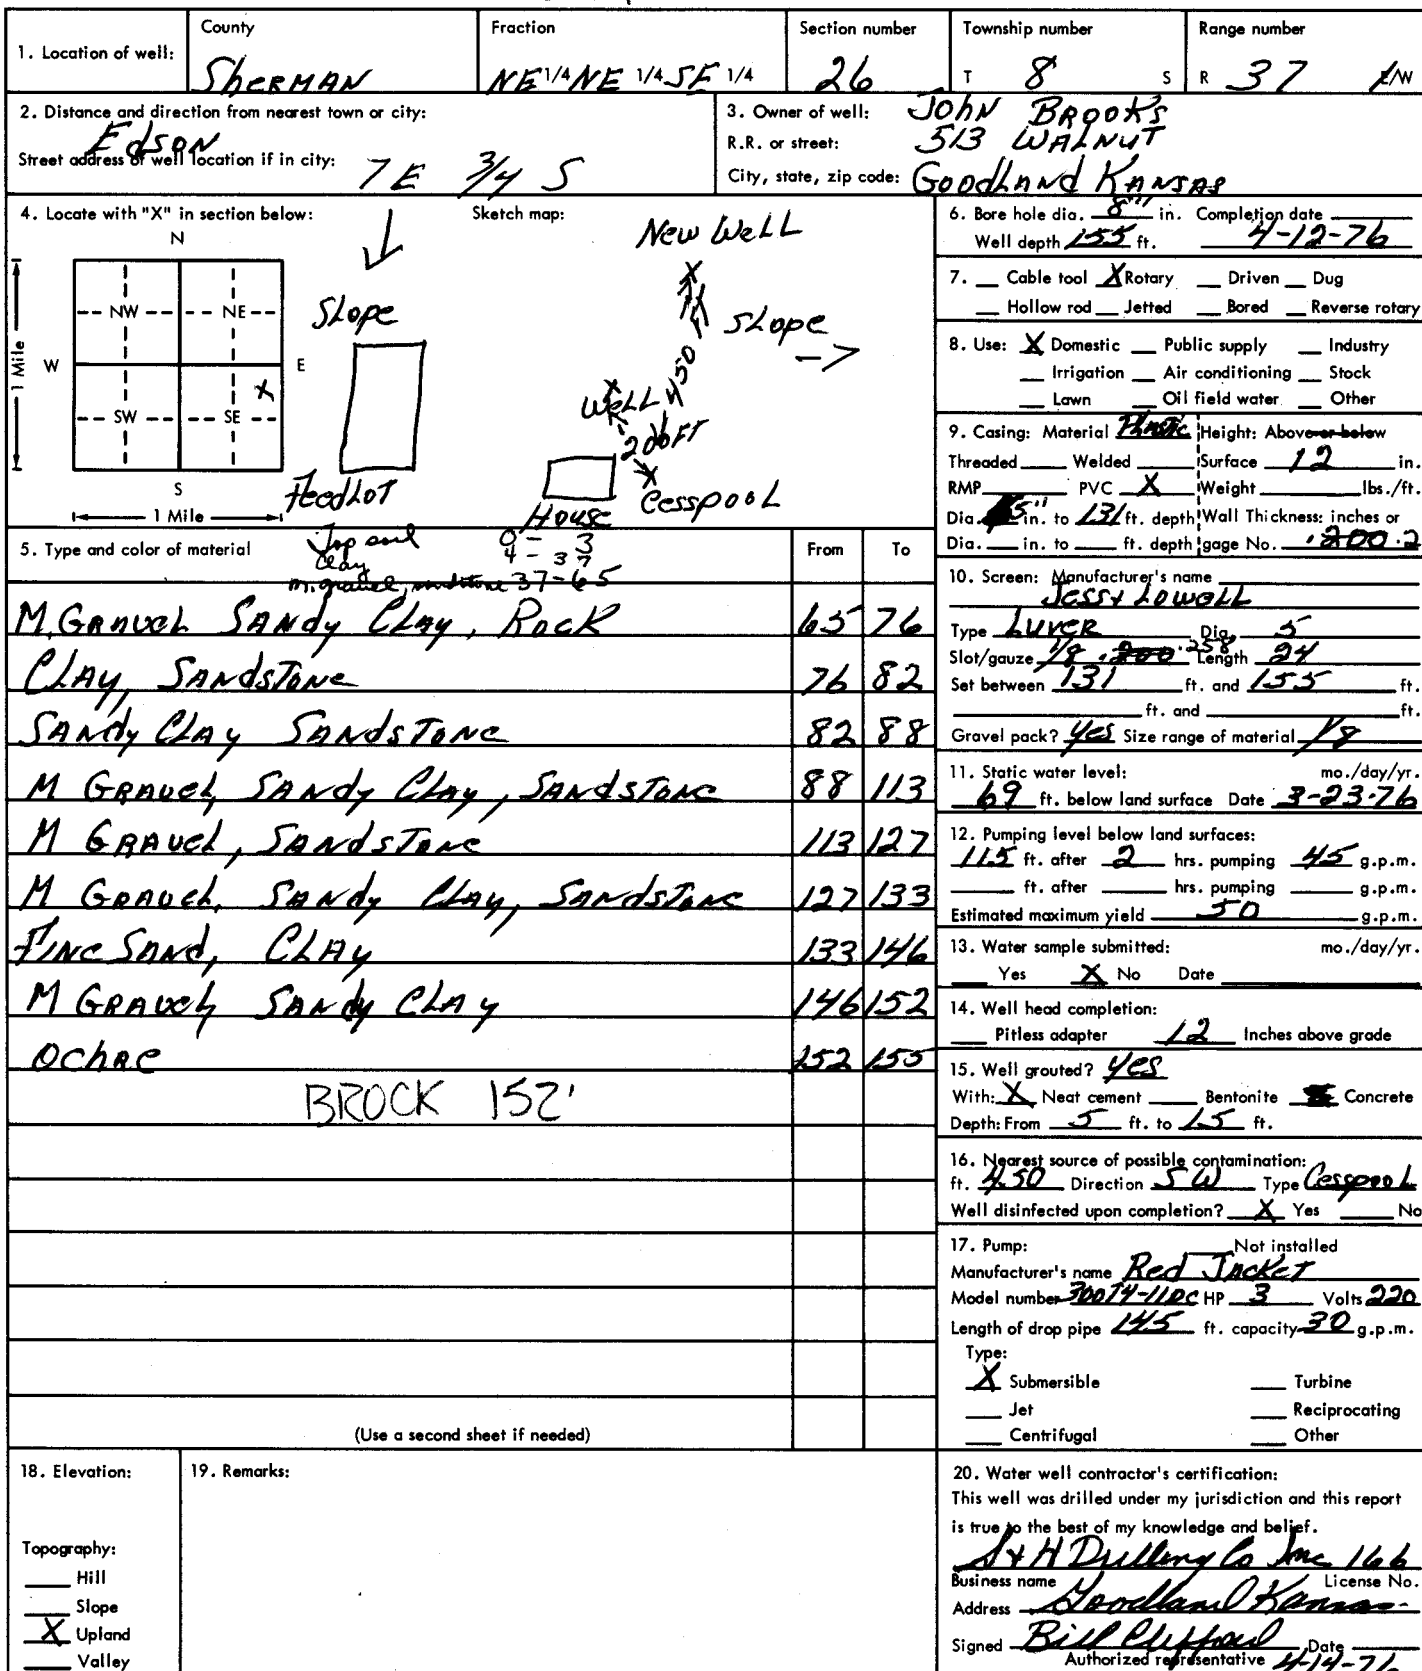 County Fraction Section number Township number Range number
1. Location of well: Sherman NE 1/4 NE 1/4 SE 1/4 26 T 8 S R 37 E/W
2. Distance and direction from nearest town or city:
Edson
Street address of well location if in city: 7 E 3/4 S
3. Owner of well: John Brooks
R.R. or street: 513 Walnut
City, state, zip code: Goodland Kansas
4. Locate with "X" in section below: Sketch map:
N
NW NE
W E
X
SW SE
S
1 Mile
1 Mile
Slope
Feedlot
New Well
X
Slope
450
Well
200 FT
X Cesspool
House
5. Type and color of material From To
Top soil 0 - 3
Clay 4 - 37
m. gravel, sandstone 37-65
M. Gravel Sandy Clay, Rock 65 76
Clay, Sandstone 76 82
Sandy Clay Sandstone 82 88
M Gravel, Sandy Clay, Sandstone 88 113
M Gravel, Sandstone 113 127
M Gravel, Sandy Clay, Sandstone 127 133
Fine Sand, Clay 133 146
M Gravel, Sandy Clay 146 152
Ochre 152 155
BROCK 152'
(Use a second sheet if needed)
6. Bore hole dia. 8" in. Completion date
Well depth 155 ft. 4-12-76
7. Cable tool X Rotary Driven Dug
Hollow rod Jetted Bored Reverse rotary
8. Use: X Domestic Public supply Industry
Irrigation Air conditioning Stock
Lawn Oil field water Other
9. Casing: Material Plastic Height: Above or below
Threaded Welded Surface 12 in.
RMP PVC X Weight lbs./ft.
Dia. 5" in. to 131 ft. depth Wall Thickness: inches or
Dia. in. to ft. depth gage No. .200 .2
10. Screen: Manufacturer's name
Jess & Lowell
Type Luver Dia. 5
Slot/gauze 1/8 .200 .258 Length 24
Set between 131 ft. and 155 ft.
ft. and ft.
Gravel pack? Yes Size range of material 1/8
11. Static water level: mo./day/yr.
69 ft. below land surface Date 3-23-76
12. Pumping level below land surfaces:
115 ft. after 2 hrs. pumping 45 g.p.m.
ft. after hrs. pumping g.p.m.
Estimated maximum yield 50 g.p.m.
13. Water sample submitted: mo./day/yr.
Yes X No Date
14. Well head completion:
Pitless adapter 12 Inches above grade
15. Well grouted? Yes
With: X Neat cement Bentonite Concrete
Depth: From 5 ft. to 15 ft.
16. Nearest source of possible contamination:
ft. 450 Direction SW Type Cesspool
Well disinfected upon completion? X Yes No
17. Pump: Not installed
Manufacturer's name Red Jacket
Model number 300T4-11DC HP 3 Volts 220
Length of drop pipe 145 ft. capacity 30 g.p.m.
Type:
X Submersible Turbine
Jet Reciprocating
Centrifugal Other
18. Elevation:
Topography:
Hill
Slope
X Upland
Valley
19. Remarks:
20. Water well contractor's certification:
This well was drilled under my jurisdiction and this report
is true to the best of my knowledge and belief.
S & H Drilling Co Inc 166
Business name License No.
Address Goodland Kansas
Signed Bill Clifford Date
Authorized representative 4-14-76